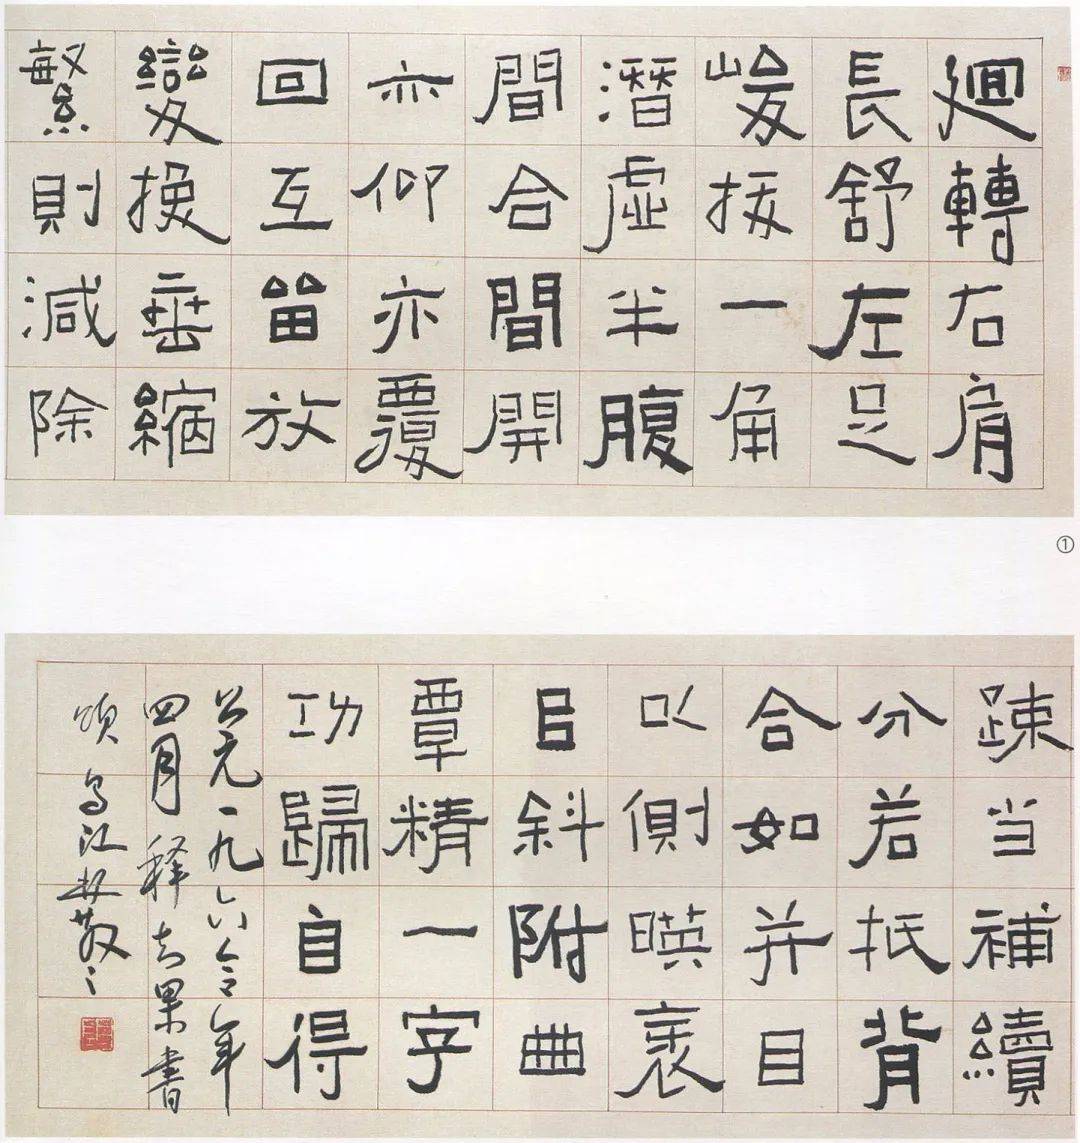 迴轉右肩
長舒左足
峻拔一角
潛虛半腹
間合間開
亦仰亦覆
回互留放
變換垂縮
繁則減除
①
踈当補續
分若抵背
合如并目
以側暎衺
㠯斜附曲
覃精一字
功歸自得
公元一九六令年
四月释智果書
頌烏江林散之